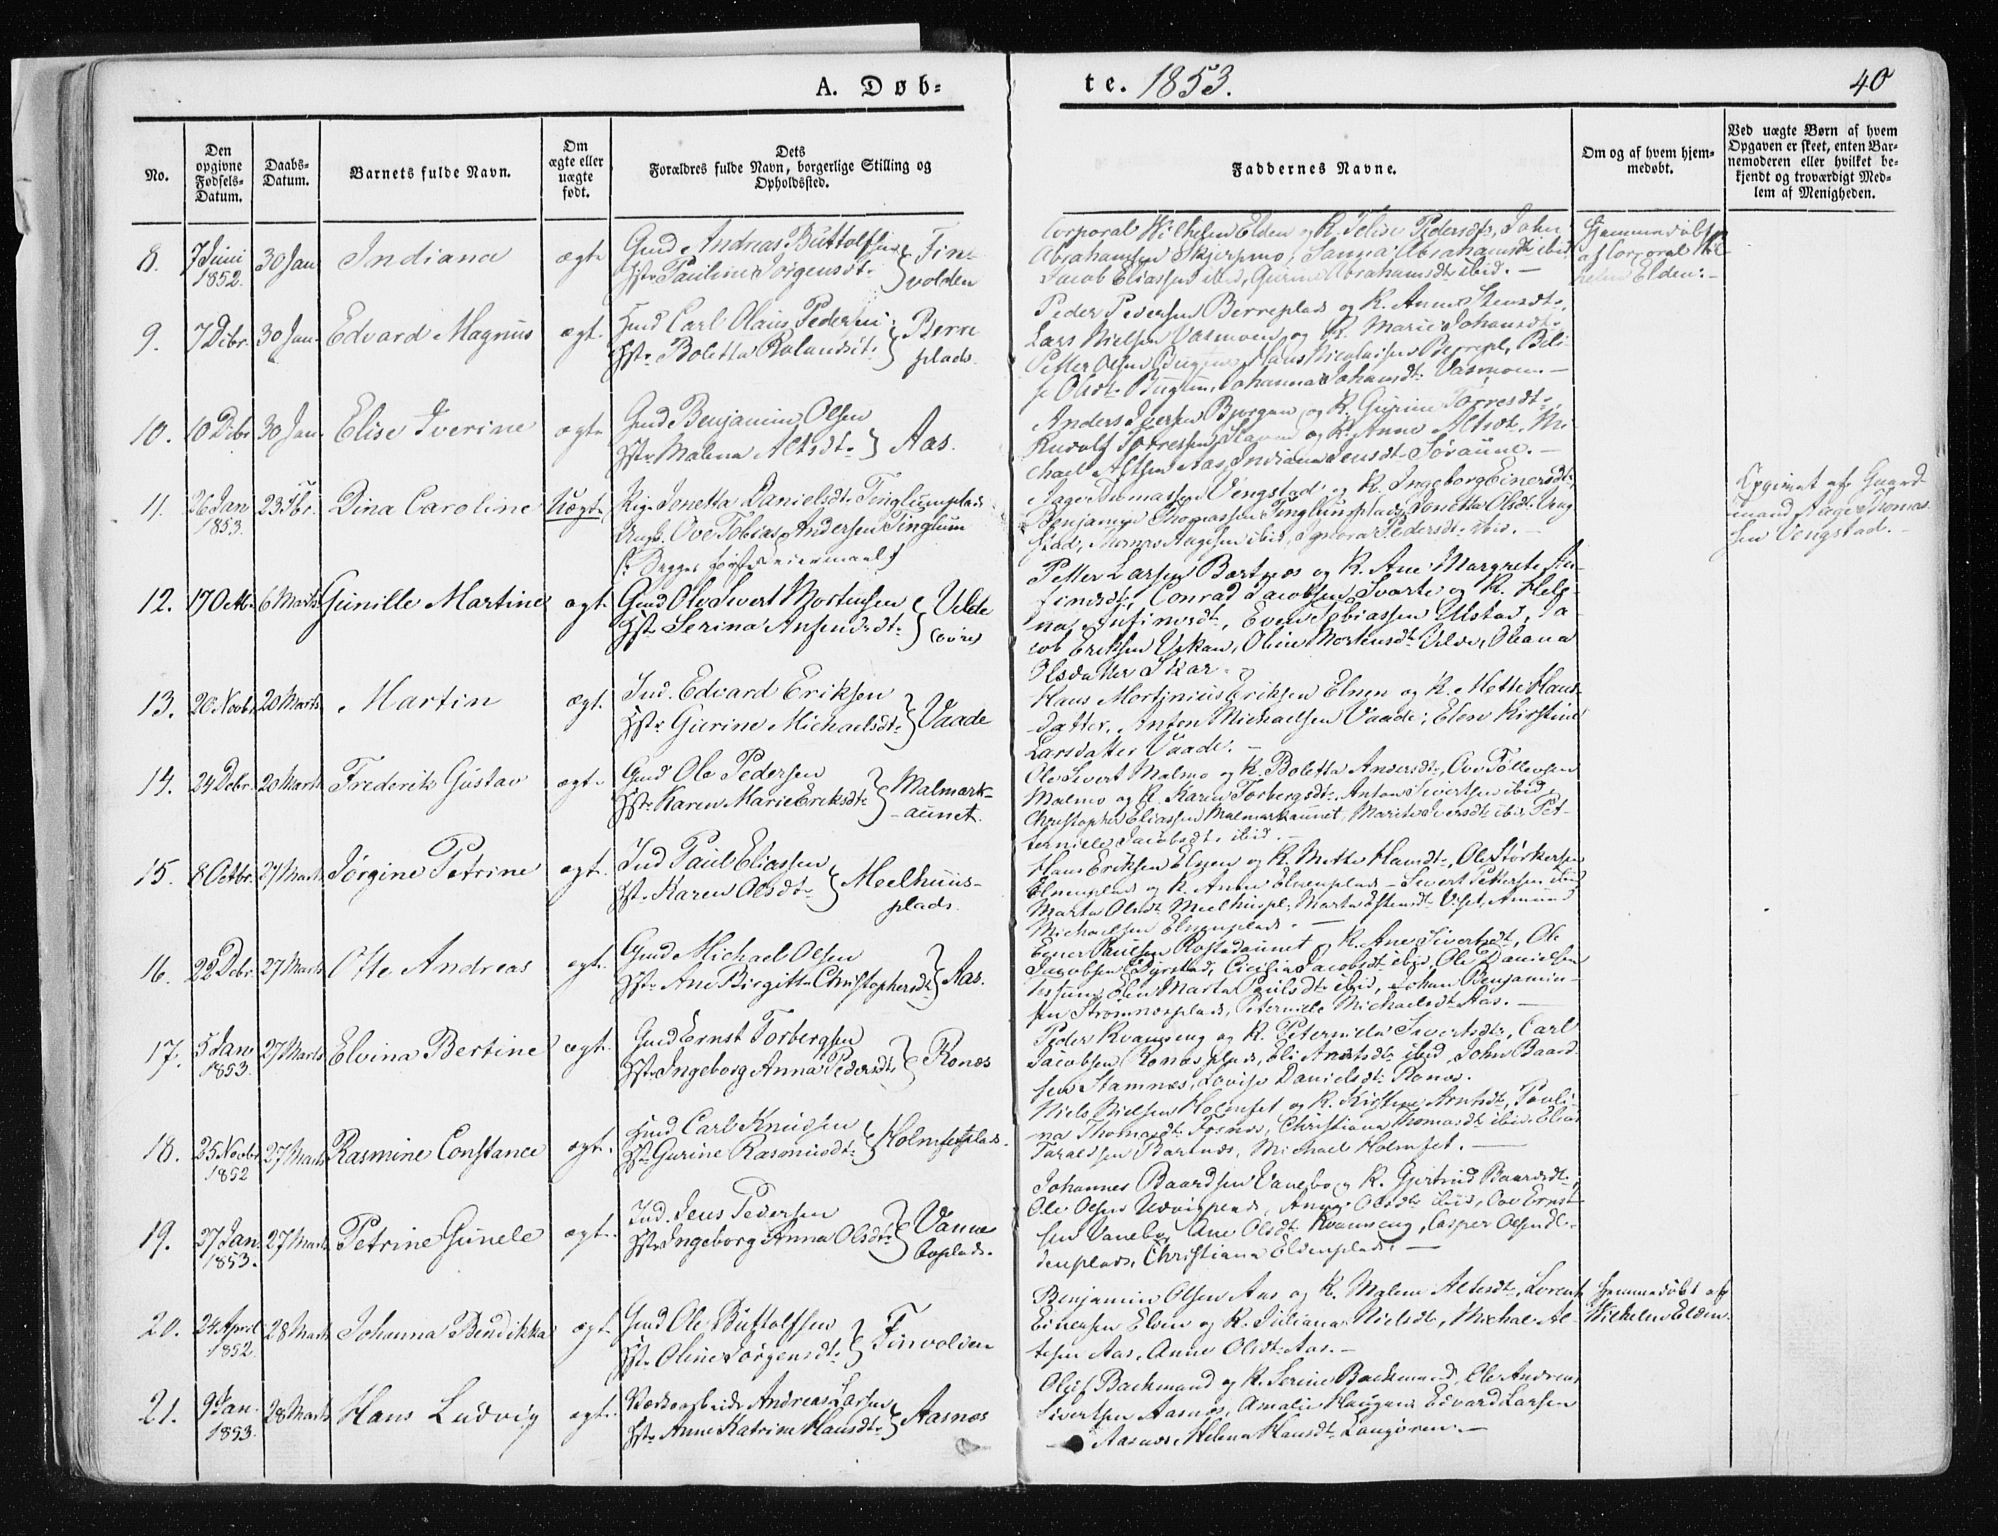 A. Døb-
te. 1853.
40
No.
Den opgivne Fødsels-Datum.
Daabs-Datum.
Barnets fulde Navn.
Om ægte eller uægte født.
Dets Forældres fulde Navn, borgerlige Stilling og Opholdssted.
Faddernes Navne.
Om og af hvem hjem-medøbt.
Ved uægte Børn af hvem Opgaven er skeet, enten Bar-nemoderen eller hvilket be-kjendt og troværdigt Med-lem af Menigheden.
8. 7 Juni 1852. 30 Jan Indiana ægte
Gmd Andreas Buttolfsen
Hstr Pauline Jørgensdtr
Finvolden
Corporal Wilhelm Elden og K. Elise Pedersdtr, John
Abrahamsen Skjersmo, Sanna Abrahamsdtr ibid
Jacob Eliassen ibid, Gurine Abrahamsdtr ibid. —
Hjemmedøbt
af Corporal Wil
helm Elden. —
9. 7 Dcbr. 30 Jan. Edvard Magnus ægt.
Hmd Carl Olaus Pedersen
Hstr Boletta Rolandsdtr
Berre plads.
Peder Pedersen Berreplads og K. Anne
Lars Nielsen Vasmoen og K. Marie Johansdtr
Petter Olsen Hans Nicolaisen Berrepl,
Olsdtr Johanna Johansdtr Vasmoen. —
10. 10 Dcbr 30 Jan. Elise Iverine ægte
Gmd Benjamin Olsen
Hstr Malena Altsdtr
Aas.
Anders Iversen Bjørgan og K. Gurine Torresdtr,
Rudolf Torresen og K. Anne Altsdtr, Mi
chael Altsen Aas, Indiana Jensdtr Søraune. —
11. 26 Jan 1853. 23 Fbr. Dina Caroline Uægte
Pige Jonetta Danielsdtr Tinglumplads
Ungk. Ove Tobias Andersen Tinglum
(: Begges første Leiermaal :)
Aage Thomassen Vengstad og K. Ingeborg Einersdtr,
Benjamin Thomassen Tinglumsplads, Jonetta Olsdtr Veng
stad, Thomas Aagesen ibid, Ignora Pedersdtr ibid. —
Opgivet af Gaard
mand Aage Thomas
sen Vengstad. —
12. 17 Octbr 6 Marts Gunille Martine ægt.
Gmd Ole Sivert Mortensen
Hstr Serina Anfindsdtr
Velde (øvre)
Petter Larsen Bartnes og K. Ane Margrete An-
findsdtr, Conrad Jacobsen Svarte og K. Hele-
na Anfinsdtr, Even Tobiassen Ulstad, Ja
cob Eriksen Oline Mortensdtr Velde, Oleana
Olsdatter Skar. —
13. 20 Novbr 20 Marts Martin ægt.
Ind. Edvard Eriksen
Hstr Gurine Michaelsdtr
Vaade
Hans Mortinius Eriksen Elnen og K. Mette Hans-
datter, Anton Michaelsen Vaade, Elen Kirstine
Larsdatter Vaade. —
14. 24 Dcbr. 20 Marts Frederik Gustav ægt.
Gmd Ole Pedersen
Hstr Karen Marie Eriksdtr
Malmark-aunet.
Ole Sivert Malmo og K. Boletta Andersdtr, Ove Tollevsen
Malmo og K. Karen Torbergsdtr, Anton Sivertsen ibid,
Christopher Eliassen Malmarkaunet, Marite Iversdtr ibid, Pet-
ternille Jacobsdtr ibid. —
15. 8 Octbr. 27 Marts Jørgine Petrine ægt.
Ind Paul Eliassen
Hstr Karen Olsdtr
Meelhuus-plads.
Hans Eriksen Elnen og K. Mette Hansdtr, Ole Størkersen
Elnenplads og K. Anne Elnenplads — Sivert Pettersen ibid
Marta Olsdtr Meelhuspl, Marta Estensdtr Viset, Amund
Michaelsen Elnenplads. —
16. 22 Dcbr. 27 Marts Otte Andreas ægt.
Gmd Michael Olsen
Hstr Ane Birgitte Christophersdtr
Aas.
Einer Paulsen Rostadaunet K. Ane Sivertsdtr, Ole
Jacobsen Dyrstad, Cicilia Jacobsdtr ibid, Ole Danielsen
Tessum, Elen Marta Paulsdtr ibid, Johan Benjamin-
sen Strømnesplads, Peternille Michaelsdtr Aas. —
17. 5 Jan 1853. 27 Marts Elvina Bertine ægt.
Gmd Ernst Torbergsen
Hstr Ingeborg Anna Pedersdtr
Ronæs
Peder Kvamseng og K. Peternilla Sivertsdtr, Carl
Jacobsen Ronæsplads, Eli Andersdtr ibid, John Baard
sen Stamnæs, Lovise Danielsdtr Ronæs.
18. 25 Novbr 1852 27 Marts Rasmine Constance ægt.
Hmd Carl Knudsen
Hstr Gurine Rasmusdtr
Holmsetplads.
Niels Nielsen Holmset og K. Kirstine Arntsdtr, Pauli-
na Thomasdtr Fosnæs, Christiana Thomasdtr ibid, Elias
Taraldsen Bartnæs, Michael Holmset. —
19. 27 Jan. 1853. 27 Marts Petrine Gunele ægt.
Ind. Jens Pedersen
Hstr Ingeborg Anna Olsdtr
Vanne boplads.
Johannes Baardsen Vanebo og K. Gjertrud Baardsdtr,
Ole Olsen Anne Olsdtr ibid, Ove Ernst
sen Vanebo, Ane Olsdtr Kvamseng, Casper Olsen El-
denplads, Christiana Eldenplads. —
20. 24 April 1852. 28 Marts Johanna Bendikka ægt.
Gmd Ole Buttolfsen
Hstr Oline Jørgensdtr
Finvolden
Benjamin Olsen Aas og K. Malene Altsdtr, Lorents
Einersen Elden og K. Juliana Nielsdtr, Michael Al-
tsen Aas, Anne Olsdtr Aas. —
Hjemmedøbt af
Wilhelm Elden
21. 9 Jan. 1853. 28 Marts Hans Ludvig ægt.
Andreas Larsen
Hstr Anne Katrine Hansdtr
Aasnæs
Oluf Bachmand og K. Serine Bachmand, Ole Andreas
Sivertsen Aasnæs, Amalie Haugan, Edvard Larsen
Aasnæs, Helena Hansdtr Langøren. —